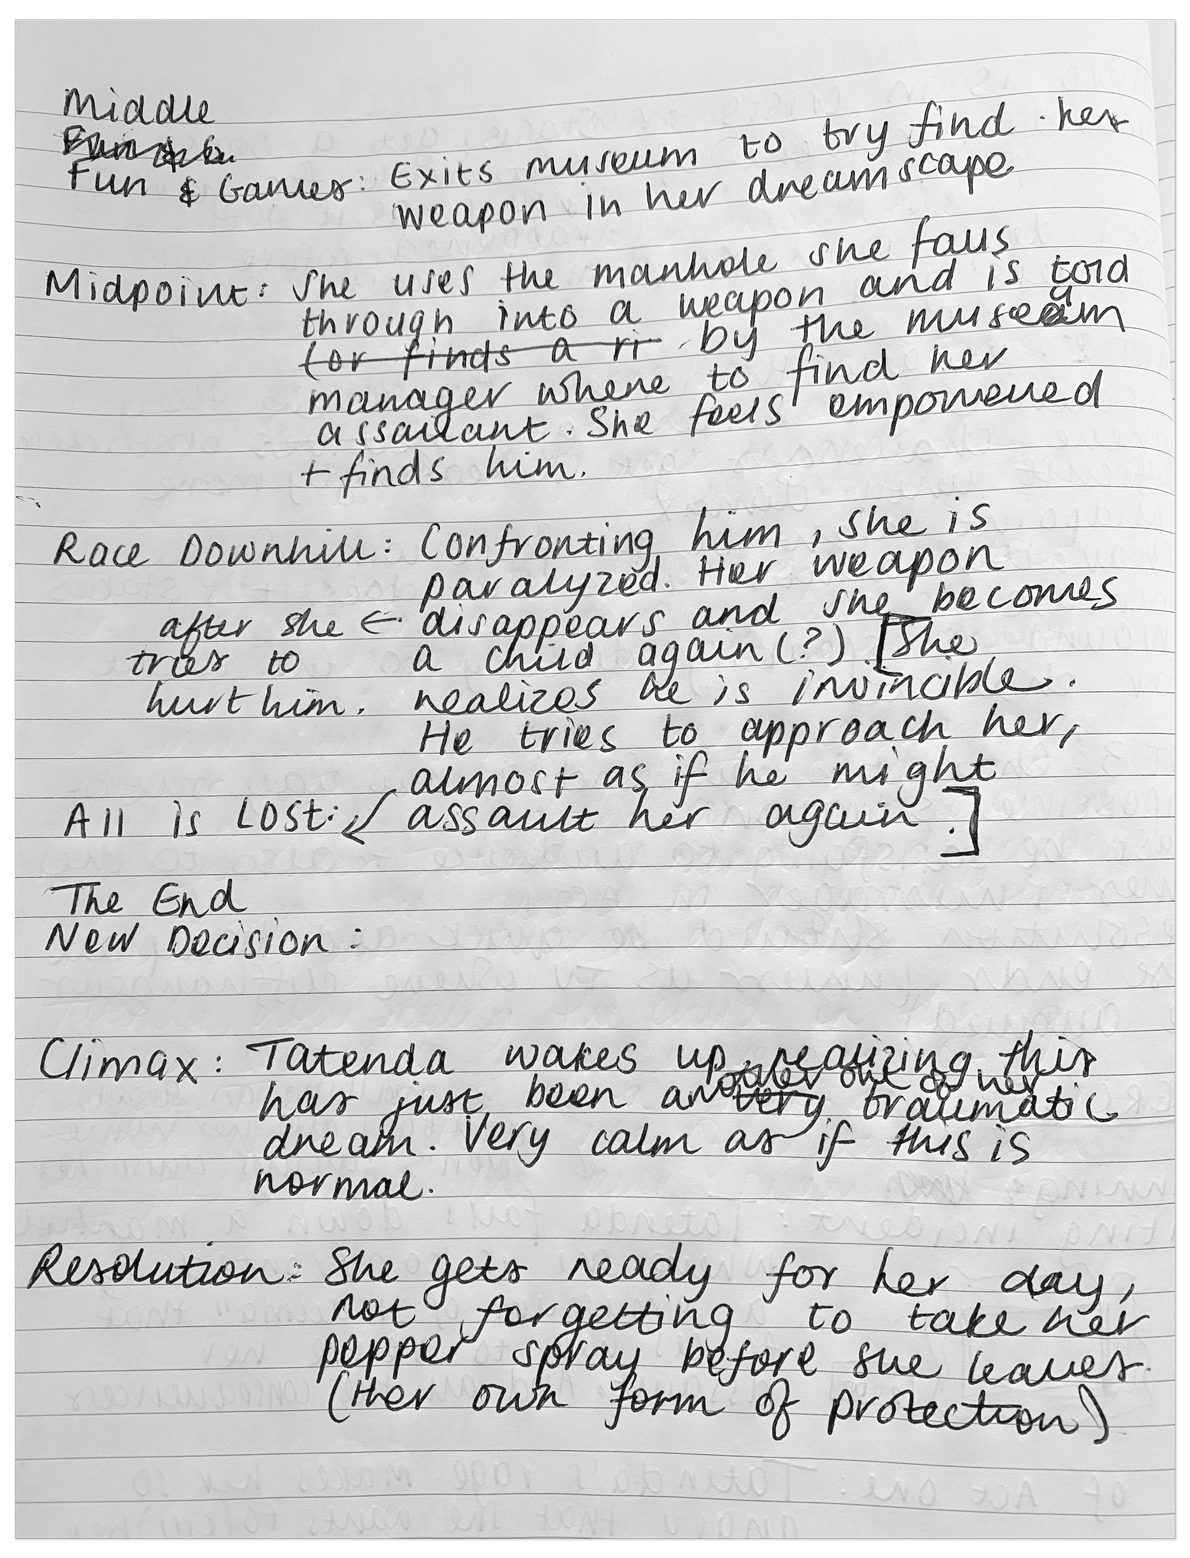 Middle
Fun & Games: Exits museum to try find her
weapon in her dreamscape
Midpoint: She uses the manhole she falls
through into a weapon and is told
(or finds a ri by the museum
manager where to find her
assailant. She feels empowered
+ finds him.
Race Downhill: Confronting him, she is
paralyzed. Her weapon
after she ← disappears and she becomes
tries to a child again (?) [She
hurt him. realizes he is invincible.
He tries to approach her,
almost as if he might
All is Lost: ↙ assault her again.]
The End
New Decision:
Climax: Tatenda wakes up, realizing this
has just been another one of her very traumatic
dream. Very calm as if this is
normal.
Resolution: She gets ready for her day,
not forgetting to take her
pepper spray before she leaves.
(Her own form of protection)